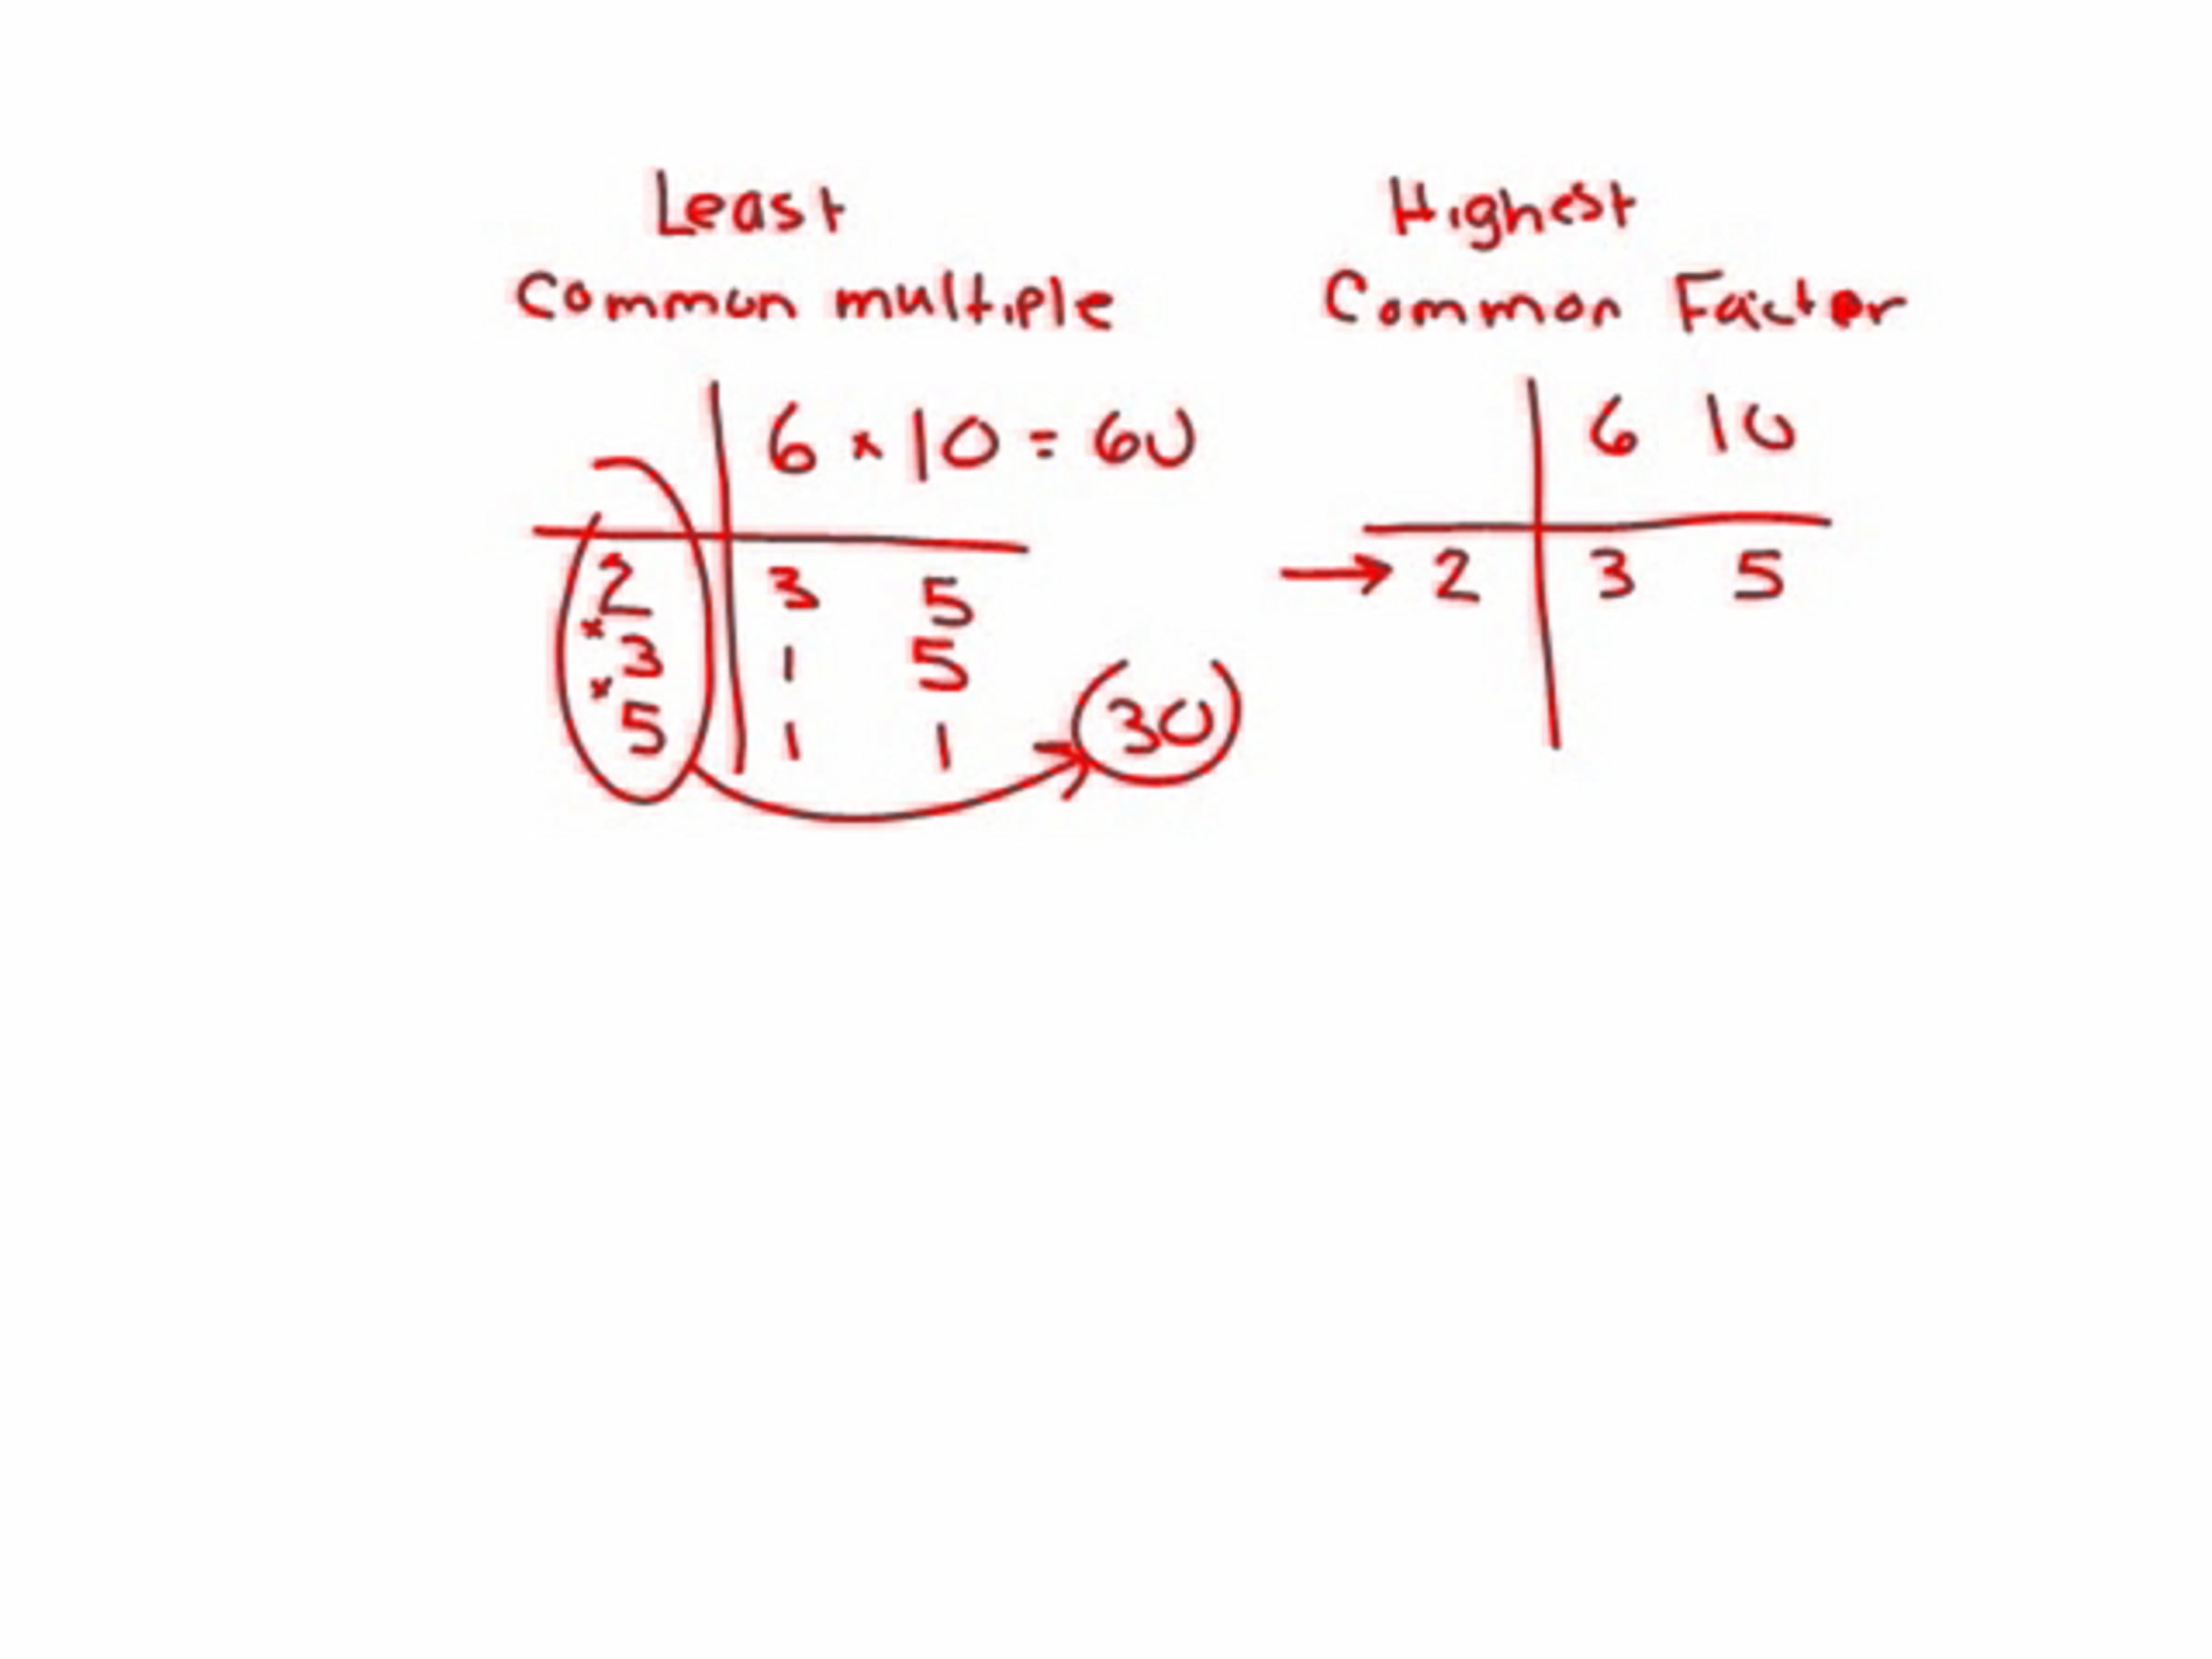 Least
Common multiple
6 × 10 = 60
2 3 5
× 3 1 5
× 5 1 1
30
Highest
Common Factor
6 10
→ 2 3 5